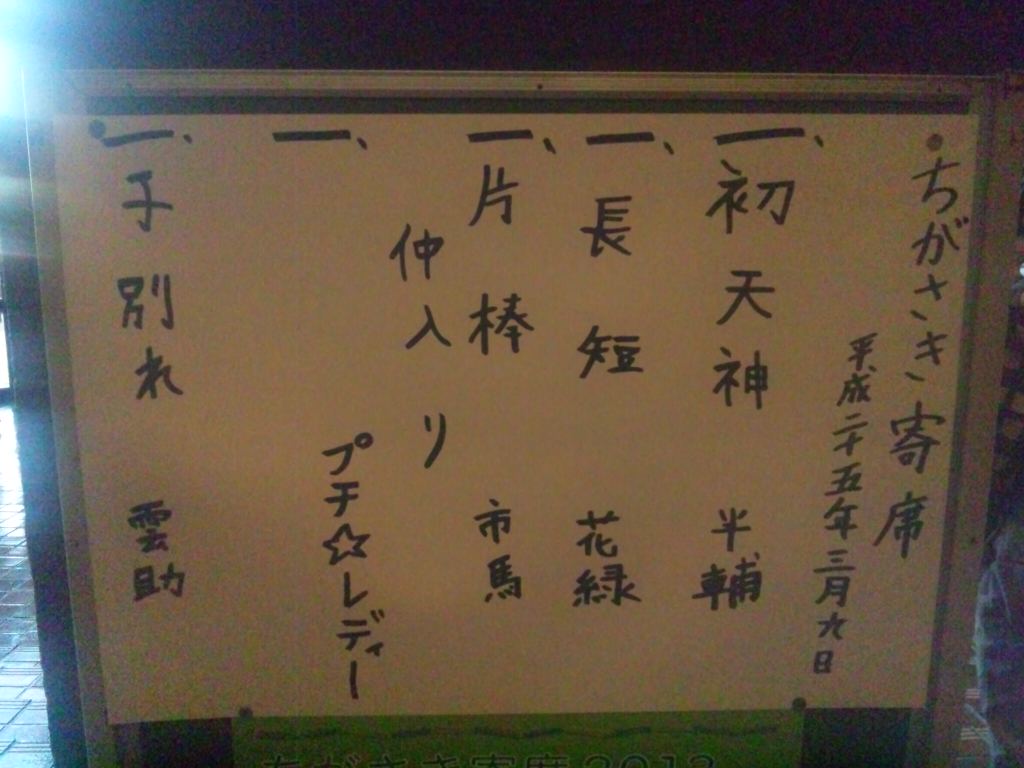 ちがさき寄席
平成二十五年三月九日
一、初天神 半輔
一、長短 花緑
一、片棒 市馬
仲入り
一、プチ☆レディー
一、子別れ 雲助
ちがさき寄席2013